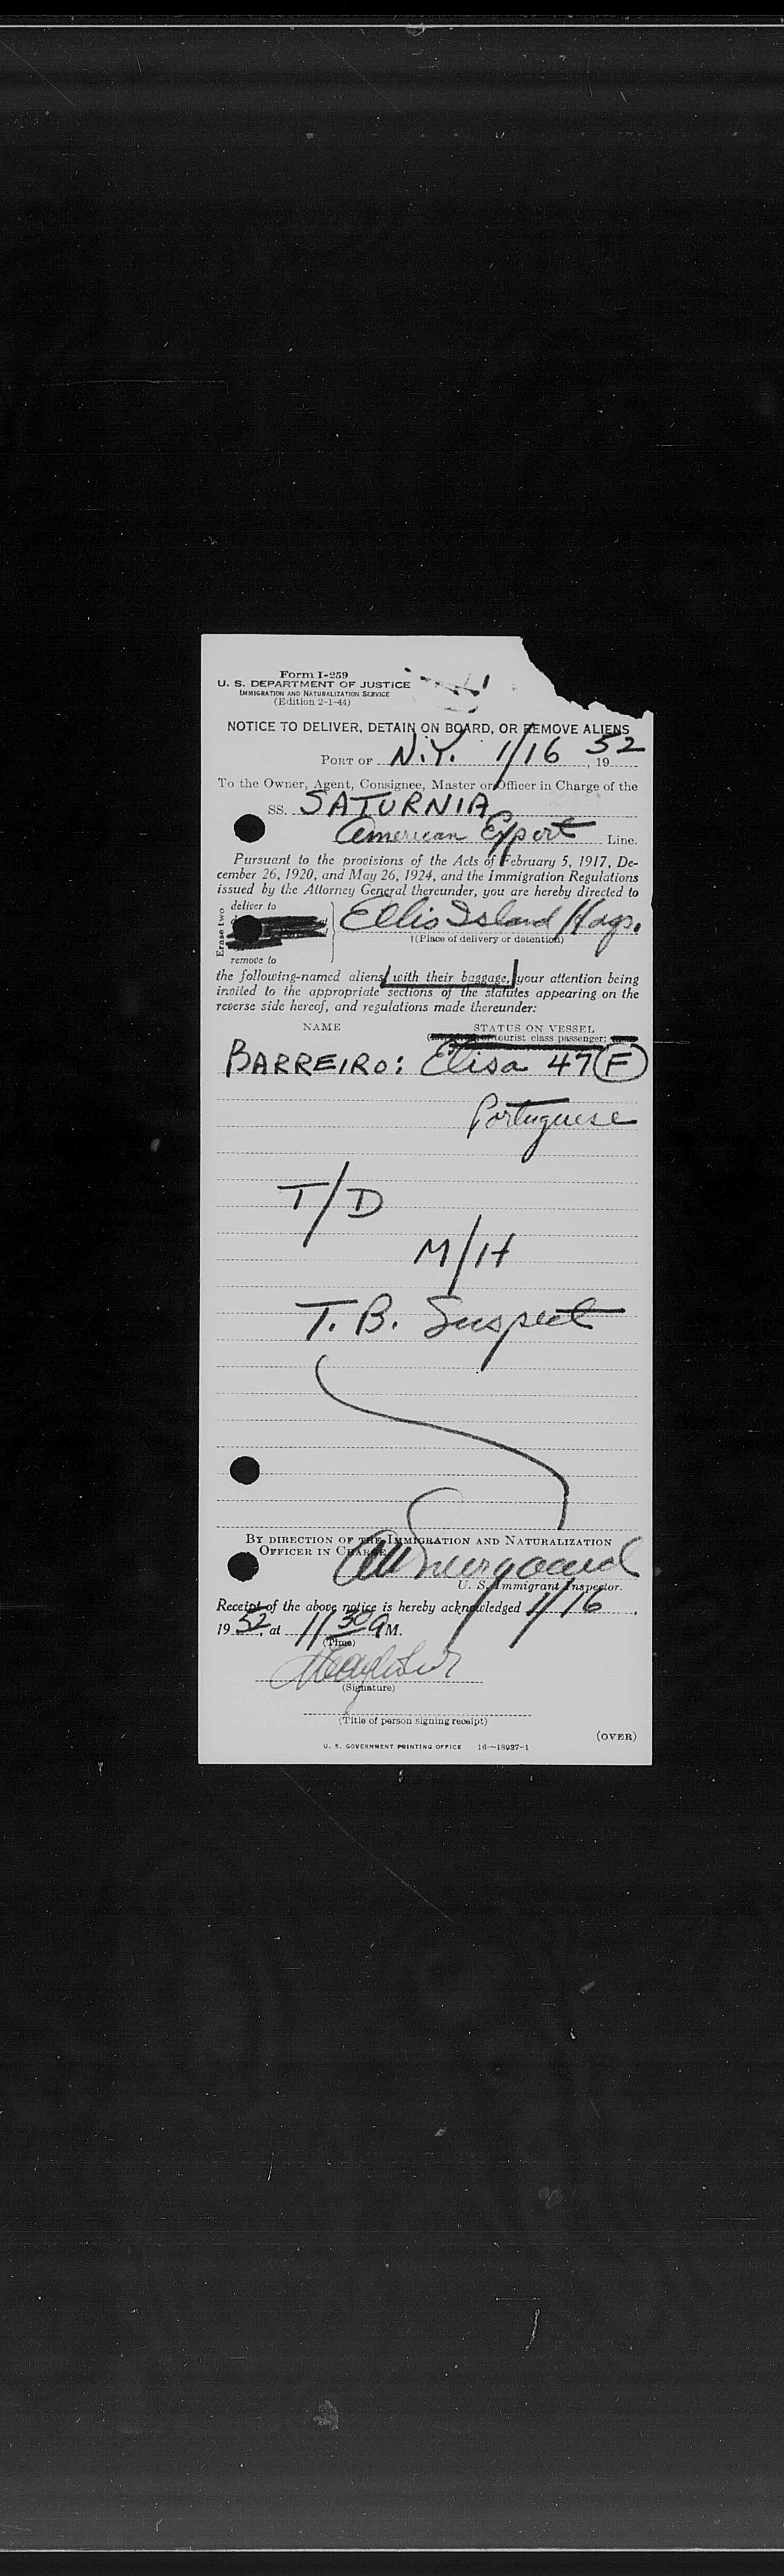 Form I-259
U. S. DEPARTMENT OF JUSTICE
IMMIGRATION AND NATURALIZATION SERVICE
(Edition 2-1-44)
NOTICE TO DELIVER, DETAIN ON BOARD, OR REMOVE ALIENS
PORT OF N.Y. 1/16, 1952
To the Owner, Agent, Consignee, Master or Officer in Charge of the
SS. SATURNIA
American Export Line.
Pursuant to the provisions of the Acts of February 5, 1917, De-
cember 26, 1920, and May 26, 1924, and the Immigration Regulations
issued by the Attorney General thereunder, you are hereby directed to
Erase two
deliver to
Ellis Island
†(Place of delivery or detention)
remove to
the following-named aliens with their baggage, your attention being
invited to the appropriate sections of the statutes appearing on the
reverse side hereof, and regulations made thereunder:
NAME STATUS ON VESSEL
tourist class passenger;
BARREIRO: Elisa 47 F
Portuguese
T/D
M/H
T. B. Suspect
BY DIRECTION OF THE IMMIGRATION AND NATURALIZATION
OFFICER IN CHARGE
U. S. Immigrant Inspector.
Receipt of the above notice is hereby acknowledged 1/16,
1952, at 11 30 A M.
(Time)
(Signature)
(Title of person signing receipt)
(OVER)
U. S. GOVERNMENT PRINTING OFFICE 16—18927-1